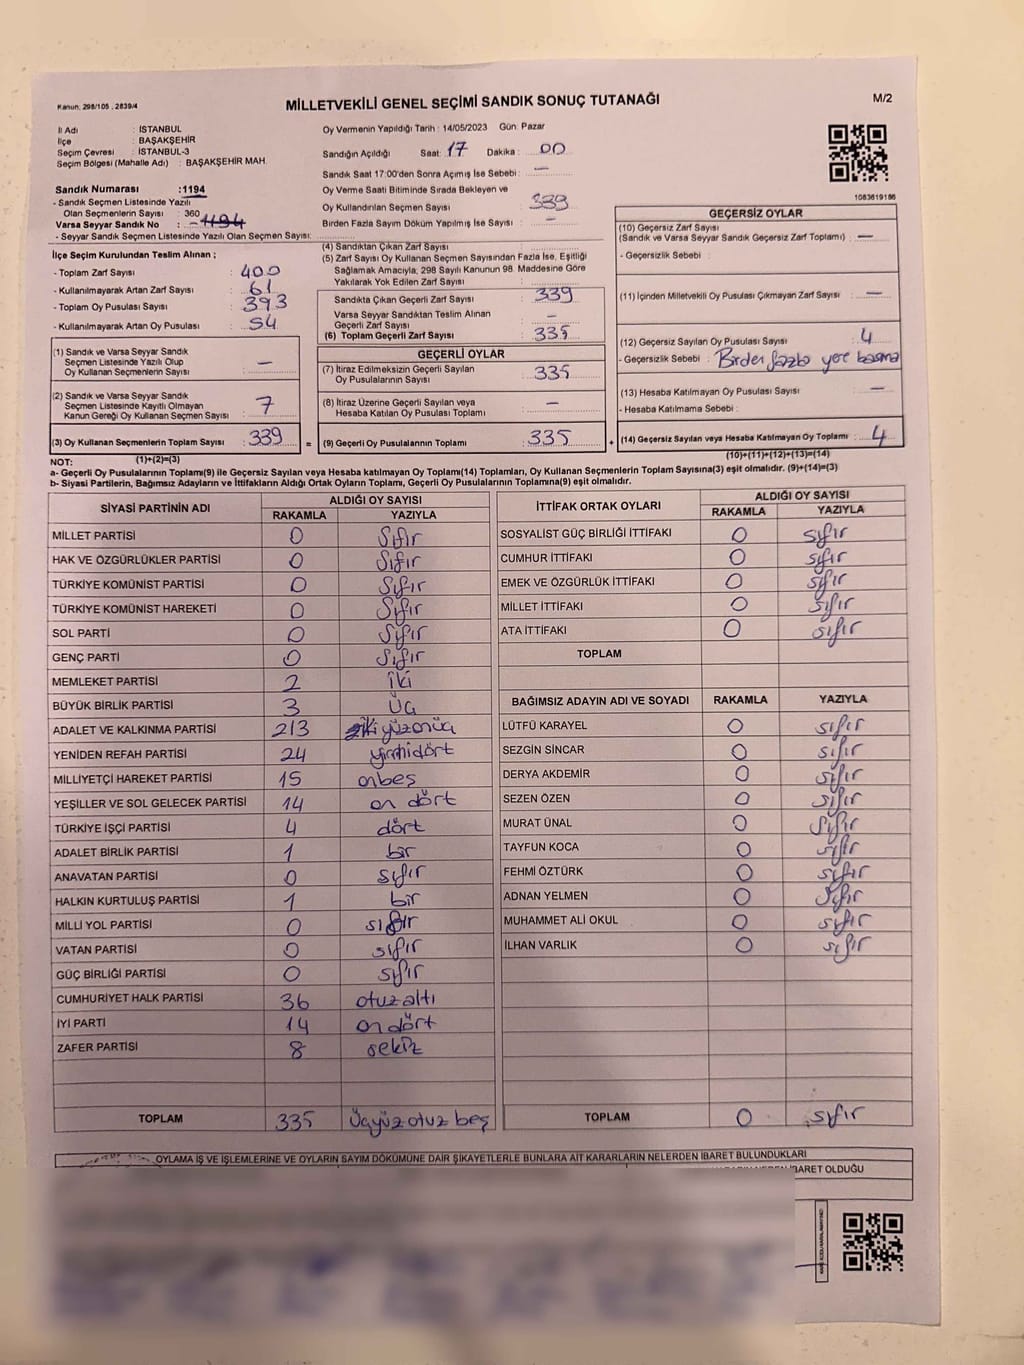 Kanun, 298/105 , 2839/4
MİLLETVEKİLİ GENEL SEÇİMİ SANDIK SONUÇ TUTANAĞI
M/2
İl Adı : İSTANBUL
İlçe : BAŞAKŞEHİR
Seçim Çevresi : İSTANBUL-3
Seçim Bölgesi (Mahalle Adı) : BAŞAKŞEHİR MAH.
Sandık Numarası :1194
- Sandık Seçmen Listesinde Yazılı
Olan Seçmenlerin Sayısı : 360
Varsa Seyyar Sandık No : 1194
- Seyyar Sandık Seçmen Listesinde Yazılı Olan Seçmen Sayısı:
Oy Vermenin Yapıldığı Tarih : 14/05/2023 Gün: Pazar
Sandığın Açıldığı Saat: 17 Dakika : 00
Sandık Saat 17:00'den Sonra Açımış İse Sebebi : —
Oy Verme Saati Bitiminde Sırada Bekleyen ve
Oy Kullandırılan Seçmen Sayısı : 339
Birden Fazla Sayım Döküm Yapılmış İse Sayısı : —
1083619186
İlçe Seçim Kurulundan Teslim Alınan ;
- Toplam Zarf Sayısı : 400
- Kullanılmayarak Artan Zarf Sayısı : 61
- Toplam Oy Pusulası Sayısı : 393
- Kullanılmayarak Artan Oy Pusulası : 54
(1) Sandık ve Varsa Seyyar Sandık
Seçmen Listesinde Yazılı Olup
Oy Kullanan Seçmenlerin Sayısı : —
(2) Sandık ve Varsa Seyyar Sandık
Seçmen Listesinde Kayıtlı Olmayan
Kanun Gereği Oy Kullanan Seçmen Sayısı : 7
(3) Oy Kullanan Seçmenlerin Toplam Sayısı : 339
(1)+(2)=(3)
(4) Sandıktan Çıkan Zarf Sayısı :
(5) Zarf Sayısı Oy Kullanan Seçmen Sayısından Fazla İse, Eşitliği
Sağlamak Amacıyla; 298 Sayılı Kanunun 98. Maddesine Göre
Yakılarak Yok Edilen Zarf Sayısı :
Sandıkta Çıkan Geçerli Zarf Sayısı : 339
Varsa Seyyar Sandıktan Teslim Alınan
Geçerli Zarf Sayısı : —
(6) Toplam Geçerli Zarf Sayısı : 335
GEÇERLİ OYLAR
(7) İtiraz Edilmeksizin Geçerli Sayılan
Oy Pusulalarının Sayısı : 335
(8) İtiraz Üzerine Geçerli Sayılan veya
Hesaba Katılan Oy Pusulası Toplamı : —
= (9) Geçerli Oy Pusulalarının Toplamı : 335 +
GEÇERSİZ OYLAR
(10) Geçersiz Zarf Sayısı
(Sandık ve Varsa Seyyar Sandık Geçersiz Zarf Toplamı) : —
- Geçersizlik Sebebi :
(11) İçinden Milletvekili Oy Pusulası Çıkmayan Zarf Sayısı : —
(12) Geçersiz Sayılan Oy Pusulası Sayısı : 4
- Geçersizlik Sebebi : Birden fazla yere basma
(13) Hesaba Katılmayan Oy Pusulası Sayısı : —
- Hesaba Katılmama Sebebi :
(14) Geçersiz Sayılan veya Hesaba Katılmayan Oy Toplamı : 4
(10)+(11)+(12)+(13)=(14)
NOT:
a- Geçerli Oy Pusulalarının Toplamı(9) ile Geçersiz Sayılan veya Hesaba katılmayan Oy Toplamı(14) Toplamları, Oy Kullanan Seçmenlerin Toplam Sayısına(3) eşit olmalıdır. (9)+(14)=(3)
b- Siyasi Partilerin, Bağımsız Adayların ve İttifakların Aldığı Ortak Oyların Toplamı, Geçerli Oy Pusulalarının Toplamına(9) eşit olmalıdır.
SİYASİ PARTİNİN ADI ALDIĞI OY SAYISI
RAKAMLA YAZIYLA
MİLLET PARTİSİ 0 Sıfır
HAK VE ÖZGÜRLÜKLER PARTİSİ 0 Sıfır
TÜRKİYE KOMÜNİST PARTİSİ 0 Sıfır
TÜRKİYE KOMÜNİST HAREKETİ 0 Sıfır
SOL PARTİ 0 Sıfır
GENÇ PARTİ 0 Sıfır
MEMLEKET PARTİSİ 2 iki
BÜYÜK BİRLİK PARTİSİ 3 Üç
ADALET VE KALKINMA PARTİSİ 213 ikiyüzonüç
YENİDEN REFAH PARTİSİ 24 yirmidört
MİLLİYETÇİ HAREKET PARTİSİ 15 onbeş
YEŞİLLER VE SOL GELECEK PARTİSİ 14 on dört
TÜRKİYE İŞÇİ PARTİSİ 4 dört
ADALET BİRLİK PARTİSİ 1 bir
ANAVATAN PARTİSİ 0 sıfır
HALKIN KURTULUŞ PARTİSİ 1 bir
MİLLİ YOL PARTİSİ 0 sıfır
VATAN PARTİSİ 0 sıfır
GÜÇ BİRLİĞİ PARTİSİ 0 sıfır
CUMHURİYET HALK PARTİSİ 36 otuzaltı
İYİ PARTİ 14 on dört
ZAFER PARTİSİ 8 sekiz
TOPLAM 335 Üçyüz otuz beş
İTTİFAK ORTAK OYLARI ALDIĞI OY SAYISI
RAKAMLA YAZIYLA
SOSYALİST GÜÇ BİRLİĞİ İTTİFAKI 0 sıfır
CUMHUR İTTİFAKI 0 sıfır
EMEK VE ÖZGÜRLÜK İTTİFAKI 0 sıfır
MİLLET İTTİFAKI 0 sıfır
ATA İTTİFAKI 0 sıfır
TOPLAM
BAĞIMSIZ ADAYIN ADI VE SOYADI RAKAMLA YAZIYLA
LÜTFÜ KARAYEL 0 sıfır
SEZGİN SİNCAR 0 sıfır
DERYA AKDEMİR 0 sıfır
SEZEN ÖZEN 0 sıfır
MURAT ÜNAL 0 sıfır
TAYFUN KOCA 0 sıfır
FEHMİ ÖZTÜRK 0 sıfır
ADNAN YELMEN 0 sıfır
MUHAMMET ALİ OKUL 0 sıfır
İLHAN VARLIK 0 sıfır
TOPLAM 0 sıfır
OYLAMA İŞ VE İŞLEMLERİNE VE OYLARIN SAYIM DÖKÜMÜNE DAİR ŞİKAYETLERLE BUNLARA AİT KARARLARIN NELERDEN İBARET BULUNDUKLARI
İBARET OLDUĞU